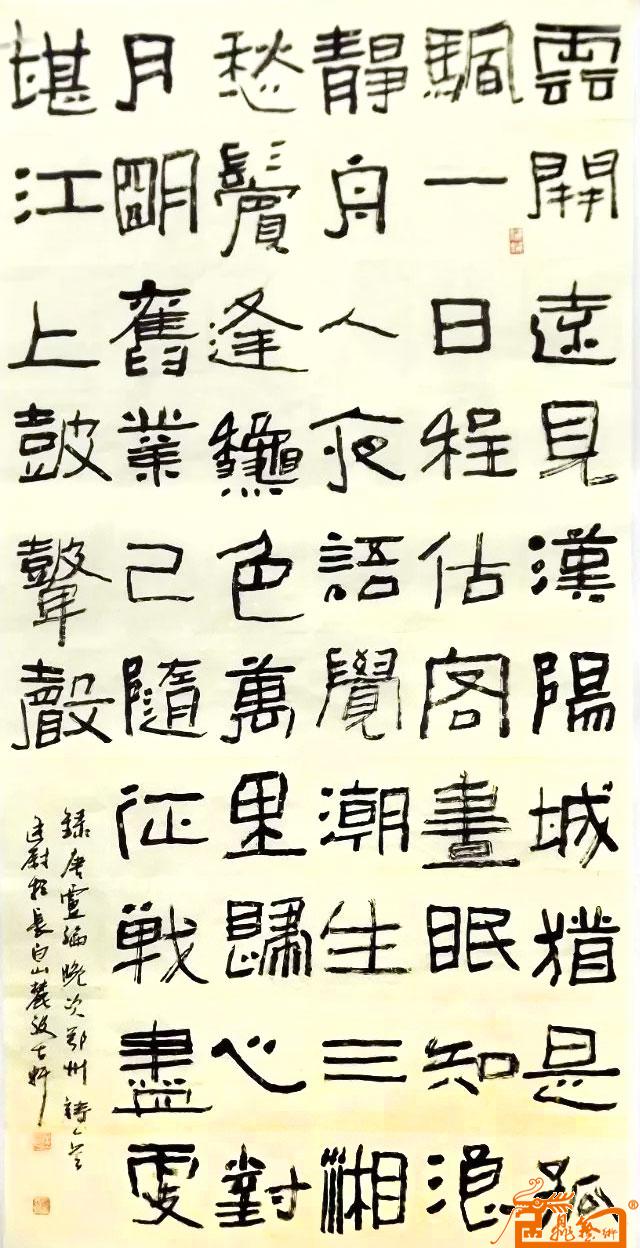 雲開遠見漢陽城猶是孤
颿一日程估客晝眠知浪
靜舟人夜語覺潮生三湘
愁鬢逢龝色萬里歸心對
月朙舊業已隨征戰盡更
堪江上鼓鼙聲
錄唐盧綸晚次鄂州詩一首
於長白山麓汲古軒